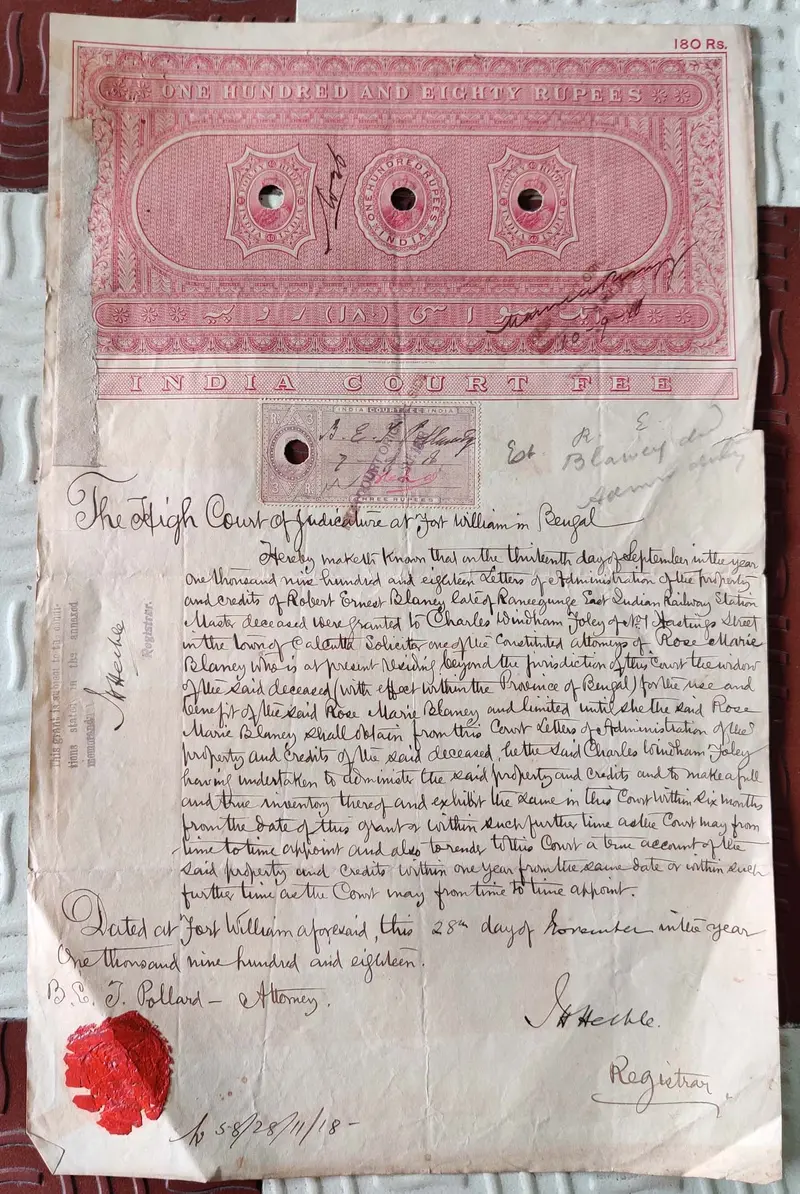 180 Rs.
ONE HUNDRED AND EIGHTY RUPEES
INDIA
ONE HUNDRED RUPEES
INDIA
INDIA
ایک سو اسی (۱۸۰) روپیہ
10-9-18
INDIA COURT FEE
INDIA COURT FEE INDIA
THREE RUPEES
Est. R. E.
Blaney decd
Admn duty
The High Court of Judicature at Fort William in Bengal
Hereby maketh known that on the thirteenth day of September in the year
one thousand nine hundred and eighteen Letters of Administration of the property
and credits of Robert Ernest Blaney late of Raneegunge East Indian Railway Station
Master deceased were granted to Charles Windham Foley of No 1 Hastings Street
in the town of Calcutta Solicitor one of the Constituted attorneys of Rose Marie
Blaney who is at present residing beyond the jurisdiction of this Court the widow
of the said deceased (with effect within the Province of Bengal) for the use and
benefit of the said Rose Marie Blaney and limited until she the said Rose
Marie Blaney shall obtain from this Court Letters of Administration of the
property and credits of the said deceased, he the said Charles Windham Foley
having undertaken to administer the said property and credits and to make a full
and true inventory thereof and exhibit the same in this Court within six months
from the date of this grant or within such further time as the Court may from
time to time appoint and also to render to this Court a true account of the
said property and credits within one year from the same date or within such
further time as the Court may from time to time appoint.
This grant is subject to the condi-
tions stated in the annexed
memorandum
Registrar.
Dated at Fort William aforesaid, this 28th day of November in the year
One thousand nine hundred and eighteen.
B. E. T. Pollard – Attorney.
Registrar
58/28/11/18-